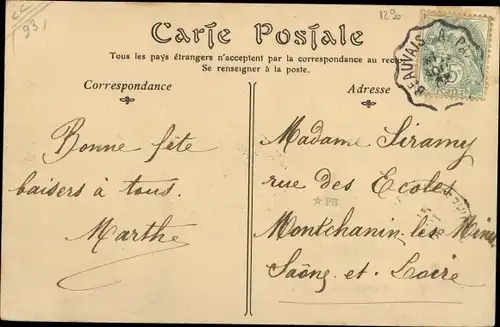 CC
(93)
1290
Carte Postale
Tous les pays étrangers n'acceptent pas la correspondance au recto
Se renseigner à la poste.
Correspondance
Adresse
BEAUVAIS À
5
POSTES
Bonne fête
baisers à tous.
Marthe
Madame Siramy
rue des Ecoles
PB
Montchanin les Mines
Saône et Loire